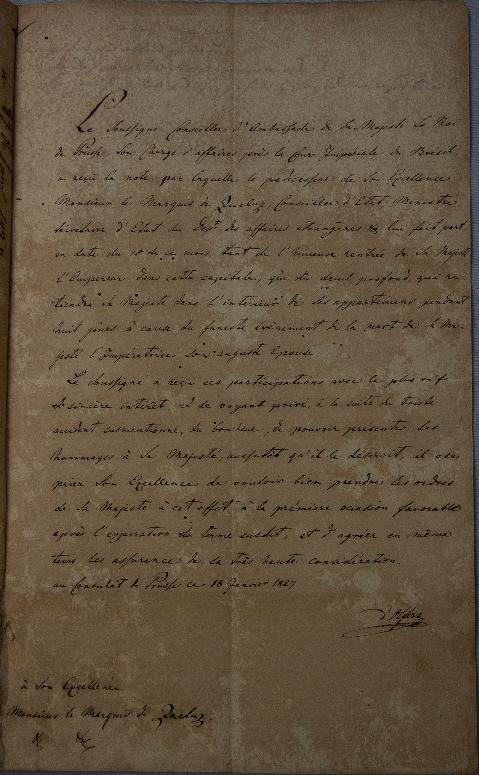 Le Soussigné Conseiller d'Ambassade de Sa Majesté Le Roi
de Prusse, Son Chargé d'affaires près la Cour Impériale du Brésil,
a reçu la note par laquelle le prédécesseur de Son Excellence
Monsieur le Marquis de Queluz, Conseiller d'Etat, Ministre
Secrétaire d'Etat du Dept. des affaires étrangères &c lui fait part
en date du 10 de ce mois, tant de l'heureuse rentrée de Sa Majesté
l'Empereur dans cette capitale, que du deuil profond, qui re-
tiendra Sa Majesté dans l'intérieur de Ses appartemens pendant
huit jours à cause du funeste événement de la mort de Sa Ma-
jesté l'Impératrice Son auguste Epouse
Le Soussigné a reçu ces participations avec le plus vif
& sincère intérêt, et se voyant privé, à la suite du triste
accident susmentionné, du bonheur, de pouvoir présenter Ses
hommages à Sa Majesté, aussitôt qu'il le désiroit, il ose
prier Son Excellence de vouloir bien prendre les ordres
de Sa Majesté à cet effet à la première occasion favorable
après l'expiration du terme susdit, et d'agréer en même
tems les assurances de sa très haute considération.
au Consulat de Prusse ce 18 Janvier 1827
d'Olfers
à Son Excellence
Monsieur le Marquis de Queluz.